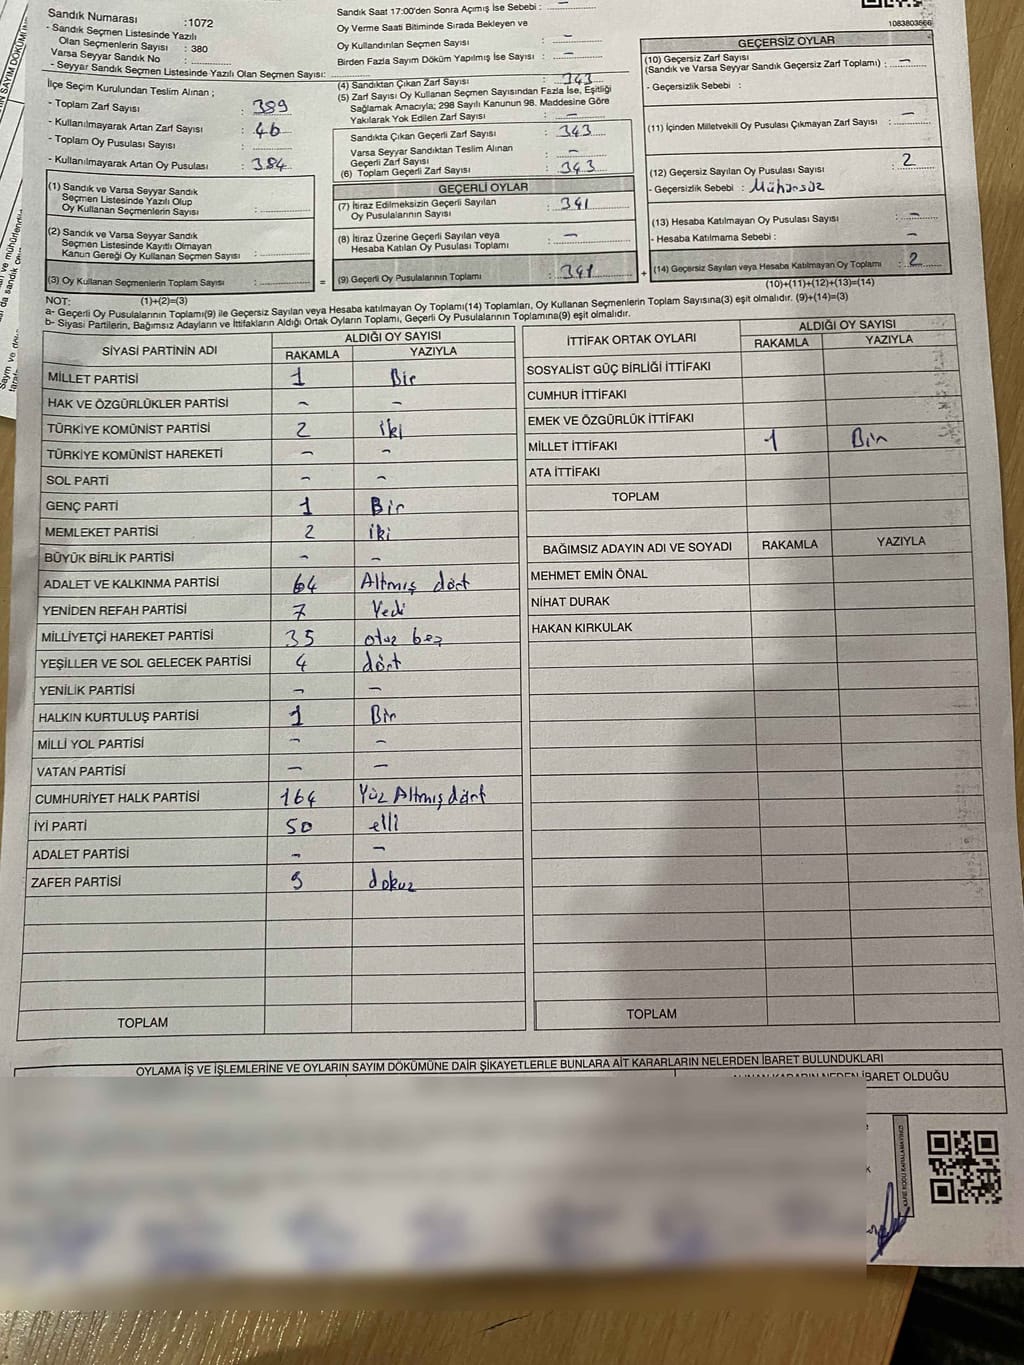 Sandık Numarası :1072
- Sandık Seçmen Listesinde Yazılı
Olan Seçmenlerin Sayısı : 380
Varsa Seyyar Sandık No :
- Seyyar Sandık Seçmen Listesinde Yazılı Olan Seçmen Sayısı:
İlçe Seçim Kurulundan Teslim Alınan ;
- Toplam Zarf Sayısı : 389
- Kullanılmayarak Artan Zarf Sayısı : 46
- Toplam Oy Pusulası Sayısı :
- Kullanılmayarak Artan Oy Pusulası : 384
(1) Sandık ve Varsa Seyyar Sandık
Seçmen Listesinde Yazılı Olup
Oy Kullanan Seçmenlerin Sayısı :
(2) Sandık ve Varsa Seyyar Sandık
Seçmen Listesinde Kayıtlı Olmayan
Kanun Gereği Oy Kullanan Seçmen Sayısı :
(3) Oy Kullanan Seçmenlerin Toplam Sayısı : =
Sandık Saat 17:00'den Sonra Açımış İse Sebebi : –
Oy Verme Saati Bitiminde Sırada Bekleyen ve
Oy Kullandırılan Seçmen Sayısı : –
Birden Fazla Sayım Döküm Yapılmış İse Sayısı : –
(4) Sandıktan Çıkan Zarf Sayısı : 343
(5) Zarf Sayısı Oy Kullanan Seçmen Sayısından Fazla İse, Eşitliği
Sağlamak Amacıyla; 298 Sayılı Kanunun 98. Maddesine Göre
Yakılarak Yok Edilen Zarf Sayısı : –
Sandıkta Çıkan Geçerli Zarf Sayısı : 343
Varsa Seyyar Sandıktan Teslim Alınan
Geçerli Zarf Sayısı : –
(6) Toplam Geçerli Zarf Sayısı : 343
GEÇERLİ OYLAR
(7) İtiraz Edilmeksizin Geçerli Sayılan
Oy Pusulalarının Sayısı : 341
(8) İtiraz Üzerine Geçerli Sayılan veya
Hesaba Katılan Oy Pusulası Toplamı : –
(9) Geçerli Oy Pusulalarının Toplamı : 341 +
1083803666
GEÇERSİZ OYLAR
(10) Geçersiz Zarf Sayısı
(Sandık ve Varsa Seyyar Sandık Geçersiz Zarf Toplamı) : –
- Geçersizlik Sebebi :
(11) İçinden Milletvekili Oy Pusulası Çıkmayan Zarf Sayısı : –
(12) Geçersiz Sayılan Oy Pusulası Sayısı : 2
- Geçersizlik Sebebi : Mühürsüz
(13) Hesaba Katılmayan Oy Pusulası Sayısı : –
- Hesaba Katılmama Sebebi : –
(14) Geçersiz Sayılan veya Hesaba Katılmayan Oy Toplamı : 2
(10)+(11)+(12)+(13)=(14)
NOT: (1)+(2)=(3)
a- Geçerli Oy Pusulalarının Toplamı(9) ile Geçersiz Sayılan veya Hesaba katılmayan Oy Toplamı(14) Toplamları, Oy Kullanan Seçmenlerin Toplam Sayısına(3) eşit olmalıdır. (9)+(14)=(3)
b- Siyasi Partilerin, Bağımsız Adayların ve İttifakların Aldığı Ortak Oyların Toplamı, Geçerli Oy Pusulalarının Toplamına(9) eşit olmalıdır.
SİYASİ PARTİNİN ADI ALDIĞI OY SAYISI
RAKAMLA YAZIYLA
MİLLET PARTİSİ 1 Bir
HAK VE ÖZGÜRLÜKLER PARTİSİ – –
TÜRKİYE KOMÜNİST PARTİSİ 2 iki
TÜRKİYE KOMÜNİST HAREKETİ – –
SOL PARTİ – –
GENÇ PARTİ 1 Bir
MEMLEKET PARTİSİ 2 iki
BÜYÜK BİRLİK PARTİSİ – –
ADALET VE KALKINMA PARTİSİ 64 Altmış dört
YENİDEN REFAH PARTİSİ 7 Yedi
MİLLİYETÇİ HAREKET PARTİSİ 35 otuz beş
YEŞİLLER VE SOL GELECEK PARTİSİ 4 dört
YENİLİK PARTİSİ – –
HALKIN KURTULUŞ PARTİSİ 1 Bir
MİLLİ YOL PARTİSİ – –
VATAN PARTİSİ – –
CUMHURİYET HALK PARTİSİ 164 Yüz Altmış dört
İYİ PARTİ 50 elli
ADALET PARTİSİ – –
ZAFER PARTİSİ 9 dokuz
TOPLAM
İTTİFAK ORTAK OYLARI ALDIĞI OY SAYISI
RAKAMLA YAZIYLA
SOSYALİST GÜÇ BİRLİĞİ İTTİFAKI
CUMHUR İTTİFAKI
EMEK VE ÖZGÜRLÜK İTTİFAKI
MİLLET İTTİFAKI 1 Bir
ATA İTTİFAKI
TOPLAM
BAĞIMSIZ ADAYIN ADI VE SOYADI RAKAMLA YAZIYLA
MEHMET EMİN ÖNAL
NİHAT DURAK
HAKAN KIRKULAK
TOPLAM
OYLAMA İŞ VE İŞLEMLERİNE VE OYLARIN SAYIM DÖKÜMÜNE DAİR ŞİKAYETLERLE BUNLARA AİT KARARLARIN NELERDEN İBARET BULUNDUKLARI
ALINAN KARARIN NEDEN İBARET OLDUĞU